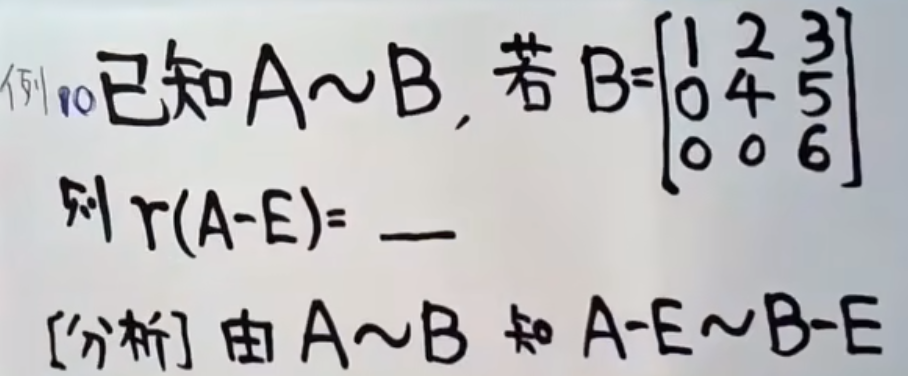 例10 已知 A~B, 若 B=[1 2 3
0 4 5
0 0 6]
则 r(A-E)= __
[分析] 由 A~B 知 A-E~B-E